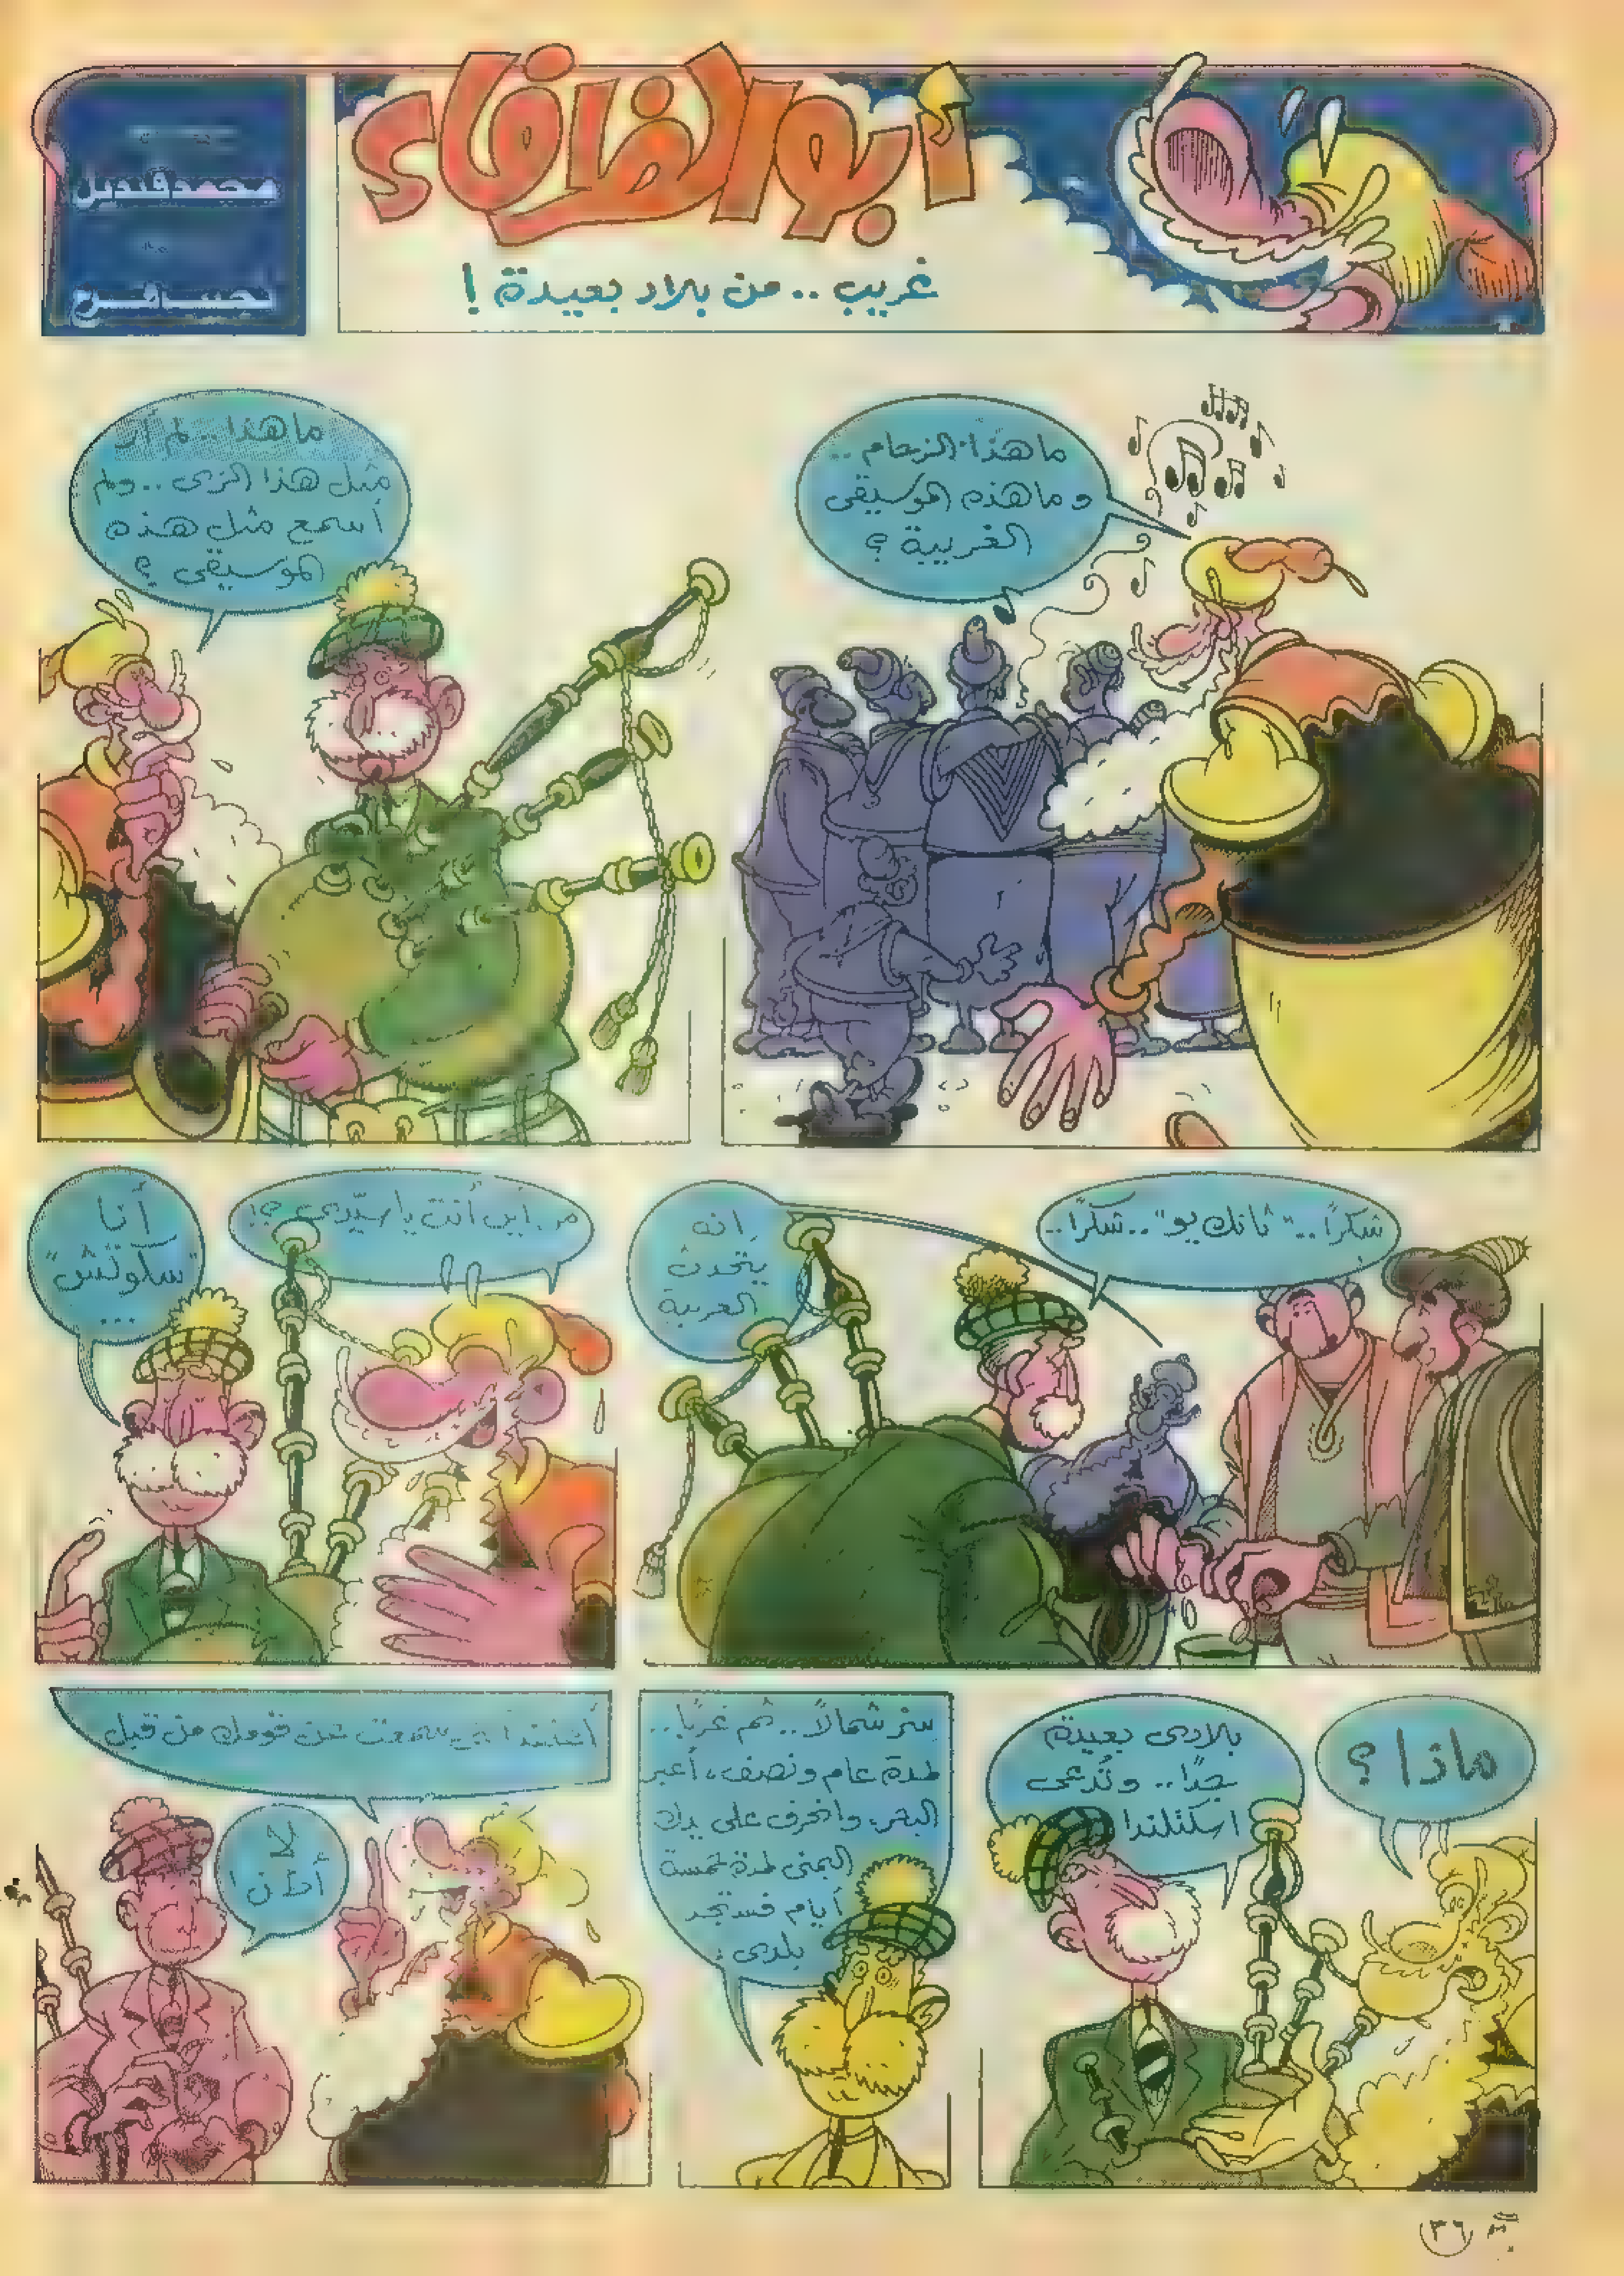 أبوالظرفاء
غريب .. من بلاد بعيدة !
محمد قنديل
نجيب فرج
ما هذا الزحام ..
وما هذه الموسيقى
الغريبة ؟
ما هذا .. لم أر
مثل هذا الزى .. ولم
أسمع مثل هذه
الموسيقى ؟
شكرًا .. "ثانك يو" .. شكرًا ..
إنه
يتحدث
العربية
من أين أنت يا سيّدى ؟!
أنا
"سكوتش"
...
ماذا ؟
بلادى بعيدة
جدًا .. وتُدعى
اسكتلندا
سر شمالاً .. ثم غربًا ..
لمدة عام ونصف، أعبر
البحر، وانحرف على يدك
اليمنى لمدة خمسة
أيام فستجد
بلدى .
أعتقد أننى سمعت عن قومك من قبل
لا
أظن !
٣٦